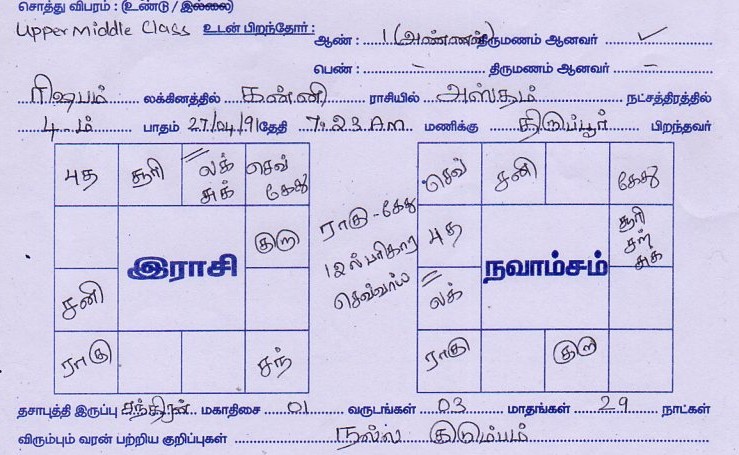 சொத்து விபரம் : (உண்டு / இல்லை)
Upper Middle Class உடன் பிறந்தோர் : ஆண் : 1 (அண்ணன்) திருமணம் ஆனவர் ✓
பெண் : – திருமணம் ஆனவர் –
ரிஷபம் லக்கினத்தில் கன்னி ராசியில் அஸ்தம் நட்சத்திரத்தில்
4ம் பாதம் 27/04/91 தேதி 7.23 AM மணிக்கு திருப்பூர் பிறந்தவர்
புத சூரி லக் சுக் செவ் கேது
குரு
இராசி
சனி
ராகு சந்
ராகு - கேது
12ல் பரிகார
செவ்வாய்
செவ் சனி கேது
புத சூரி சந் சுக்
நவாம்சம்
லக்
ராகு குரு
தசாபுத்தி இருப்பு சந்திரன் மகாதிசை 01 வருடங்கள் 03 மாதங்கள் 29 நாட்கள்
விரும்பும் வரன் பற்றிய குறிப்புகள் நல்ல குடும்பம்